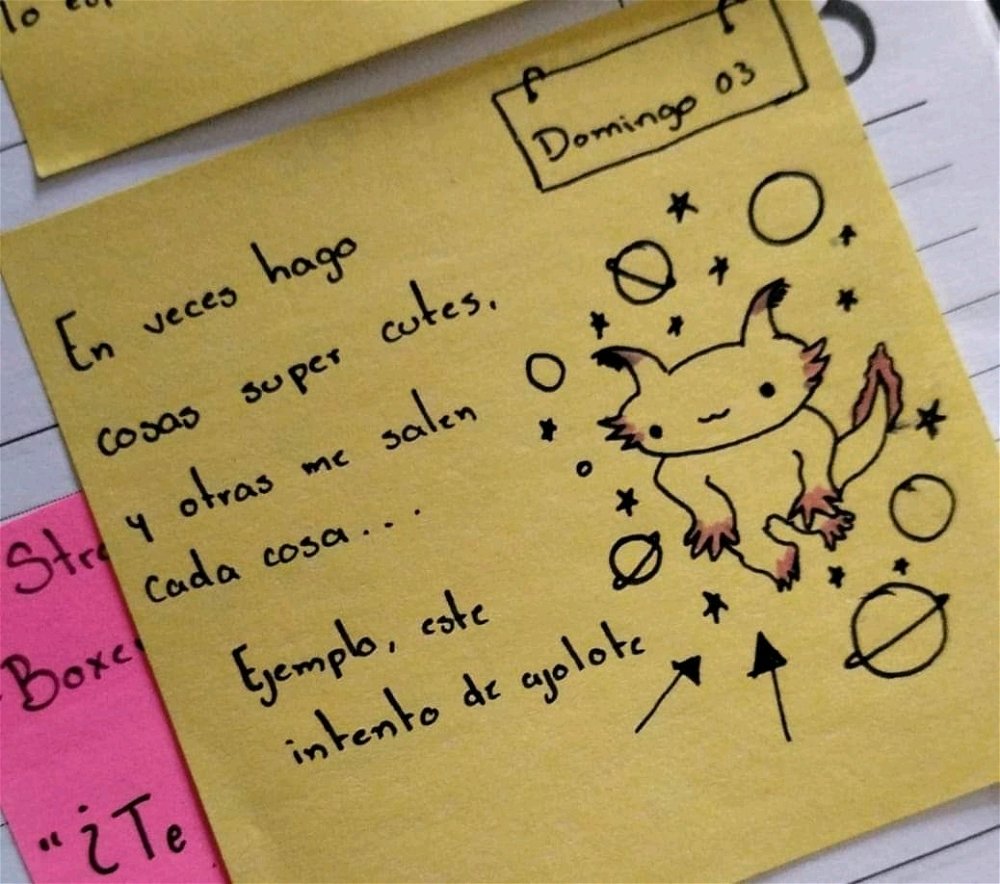 Domingo 03
En veces hago
cosas super cutes,
y otras me salen
cada cosa...
Ejemplo, este
intento de ajolote
"¿Te